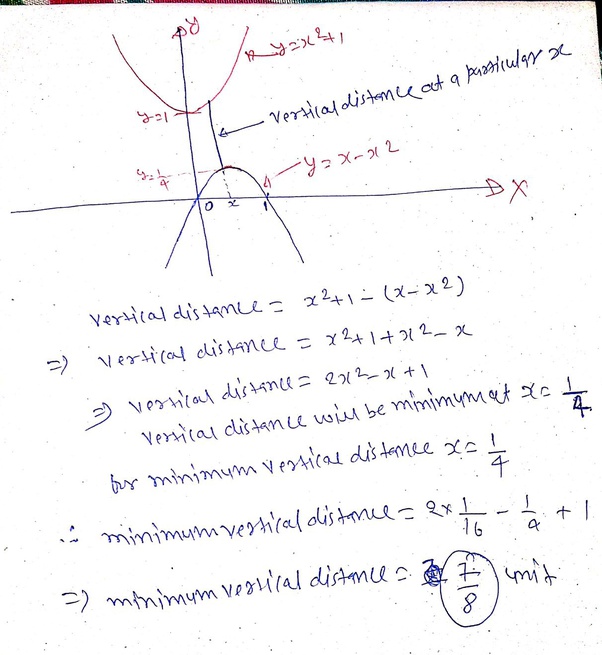 Y
y=x²+1
vertical distance at a particular x
y=1
y=x-x²
y=1/4
0 x 1 X
vertical distance = x²+1-(x-x²)
=> vertical distance = x²+1+x²-x
=> vertical distance = 2x²-x+1
vertical distance will be minimum at x = 1/4
for minimum vertical distance x = 1/4
∴ minimum vertical distance = 2× 1/16 - 1/4 + 1
=> minimum vertical distance = 7/8 unit